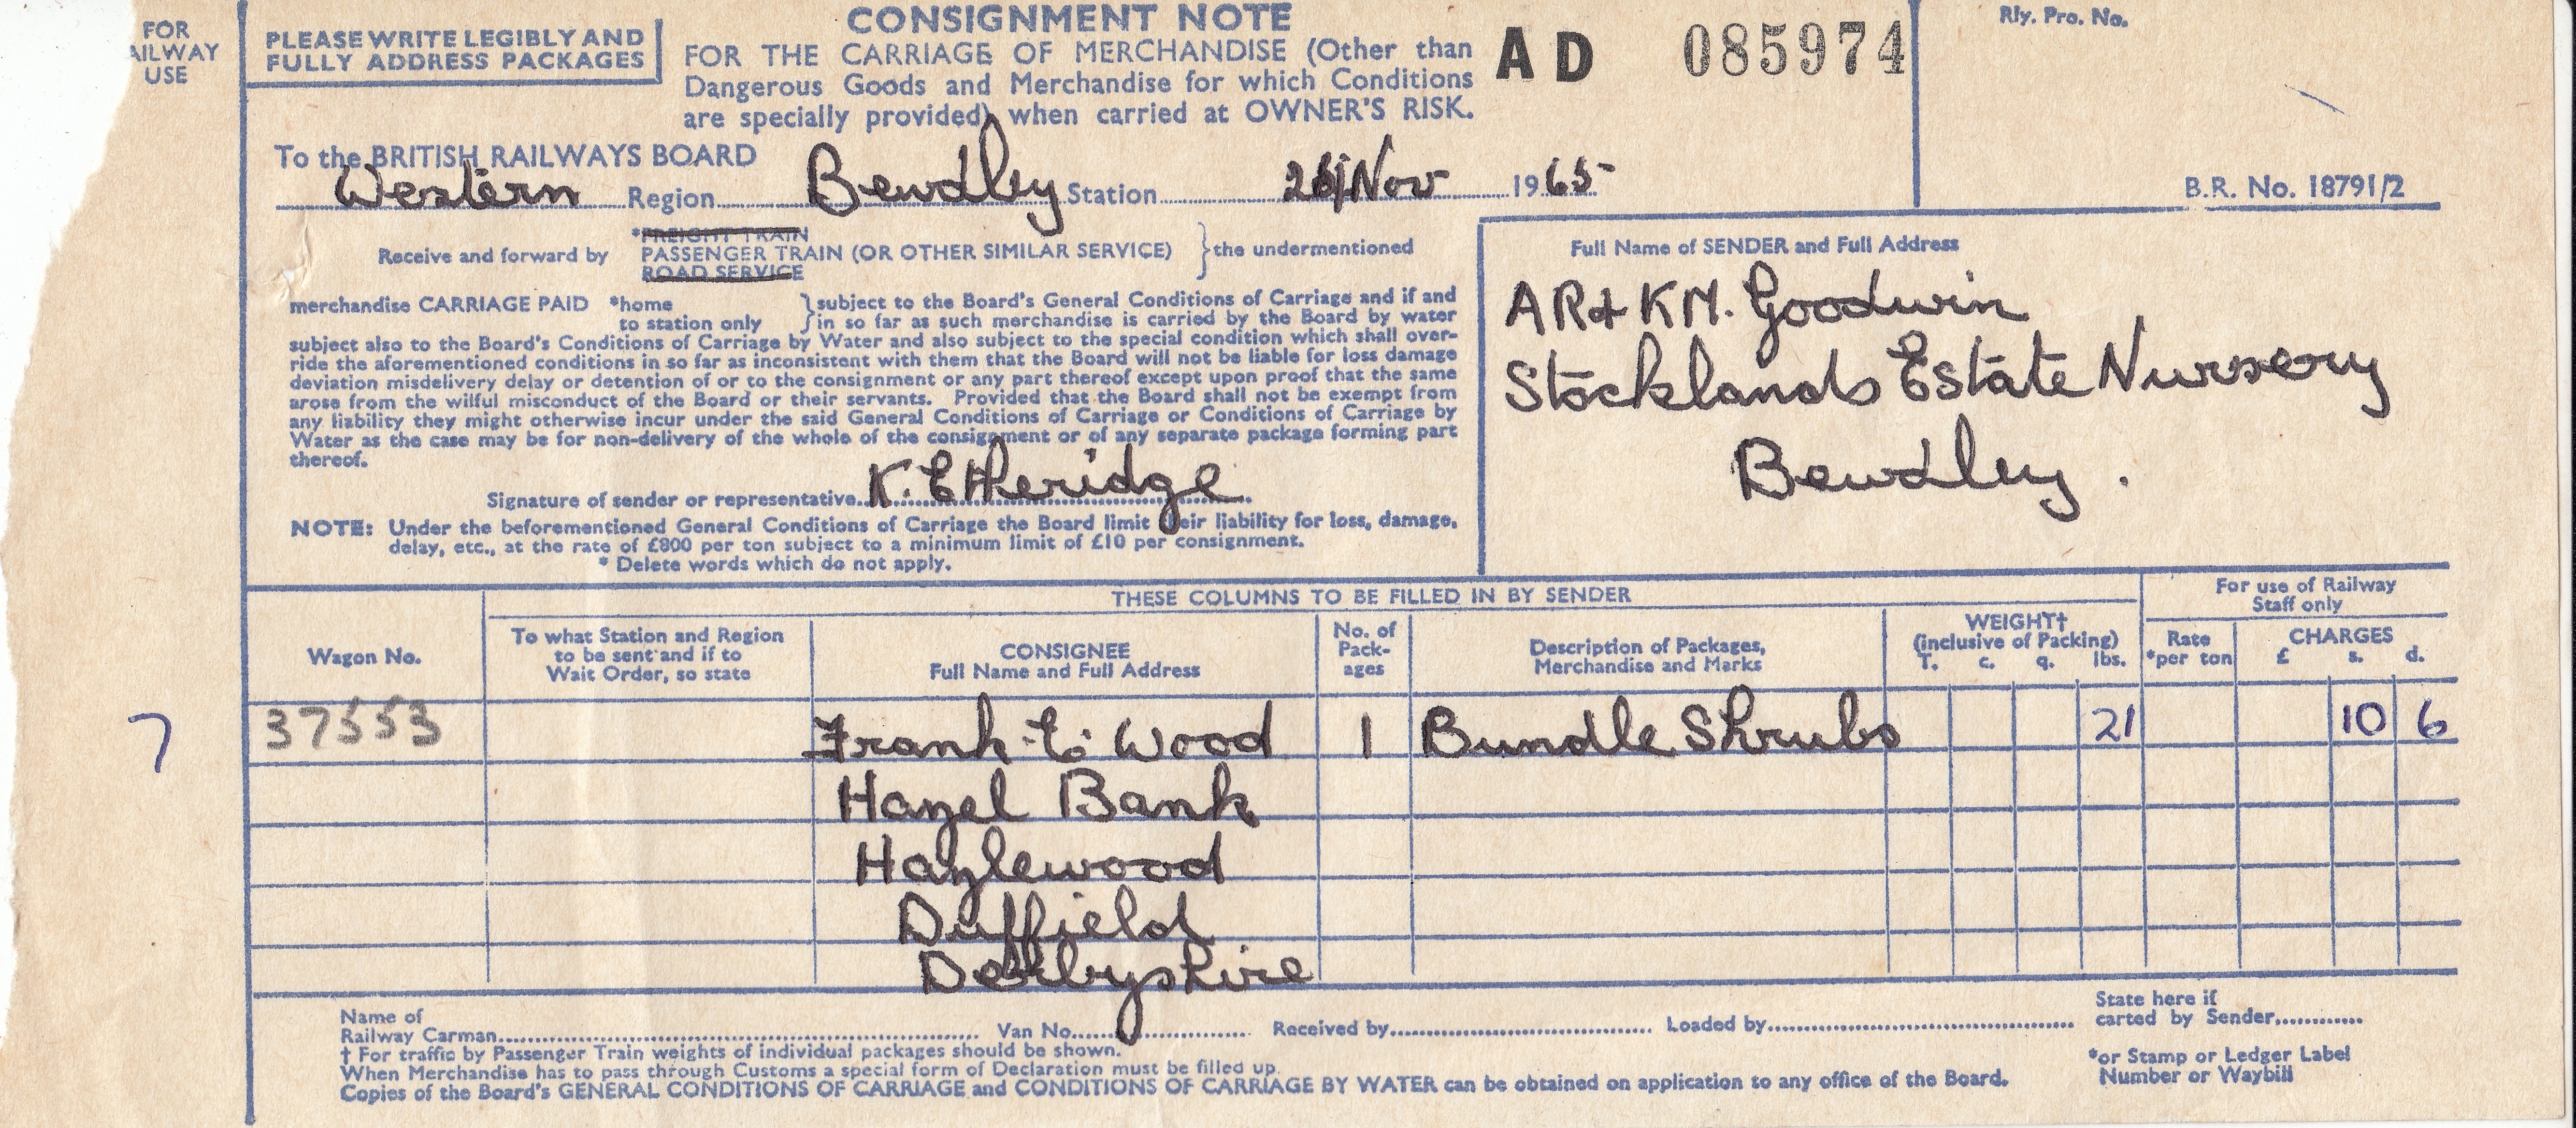 FOR
AILWAY
USE
PLEASE WRITE LEGIBLY AND
FULLY ADDRESS PACKAGES
CONSIGNMENT NOTE
FOR THE CARRIAGE OF MERCHANDISE (Other than
Dangerous Goods and Merchandise for which Conditions
are specially provided) when carried at OWNER'S RISK.
AD 085974
Rly. Pro. No.
B.R. No. 18791/2
To the BRITISH RAILWAYS BOARD
Western Region Bewdley Station Nov 1965
Receive and forward by
*FREIGHT TRAIN
PASSENGER TRAIN (OR OTHER SIMILAR SERVICE)
ROAD SERVICE
the undermentioned
merchandise CARRIAGE PAID *home
to station only
subject to the Board's General Conditions of Carriage and if and
in so far as such merchandise is carried by the Board by water
subject also to the Board's Conditions of Carriage by Water and also subject to the special condition which shall over-
ride the aforementioned conditions in so far as inconsistent with them that the Board will not be liable for loss damage
deviation misdelivery delay or detention of or to the consignment or any part thereof except upon proof that the same
arose from the wilful misconduct of the Board or their servants. Provided that the Board shall not be exempt from
any liability they might otherwise incur under the said General Conditions of Carriage or Conditions of Carriage by
Water as the case may be for non-delivery of the whole of the consignment or of any separate package forming part
thereof.
Signature of sender or representative K. Etheridge
NOTE: Under the beforementioned General Conditions of Carriage the Board limit their liability for loss, damage,
delay, etc., at the rate of £800 per ton subject to a minimum limit of £10 per consignment.
* Delete words which do not apply.
Full Name of SENDER and Full Address
AR & KM. Goodwin
Stocklands Estate Nursery
Bewdley.
THESE COLUMNS TO BE FILLED IN BY SENDER
For use of Railway
Staff only
Wagon No.
To what Station and Region
to be sent and if to
Wait Order, so state
CONSIGNEE
Full Name and Full Address
No. of
Pack-
ages
Description of Packages,
Merchandise and Marks
WEIGHT†
(inclusive of Packing)
T. c. q. lbs.
Rate
*per ton
CHARGES
£ s. d.
7 37553 Frank E. Wood 1 Bundle Shrubs 21 10 6
Hazel Bank
Hazlewood
Duffield
Derbyshire
Name of
Railway Carman Van No. Received by Loaded by
State here if
carted by Sender
† For traffic by Passenger Train weights of individual packages should be shown.
When Merchandise has to pass through Customs a special form of Declaration must be filled up.
Copies of the Board's GENERAL CONDITIONS OF CARRIAGE and CONDITIONS OF CARRIAGE BY WATER can be obtained on application to any office of the Board.
*or Stamp or Ledger Label
Number or Waybill